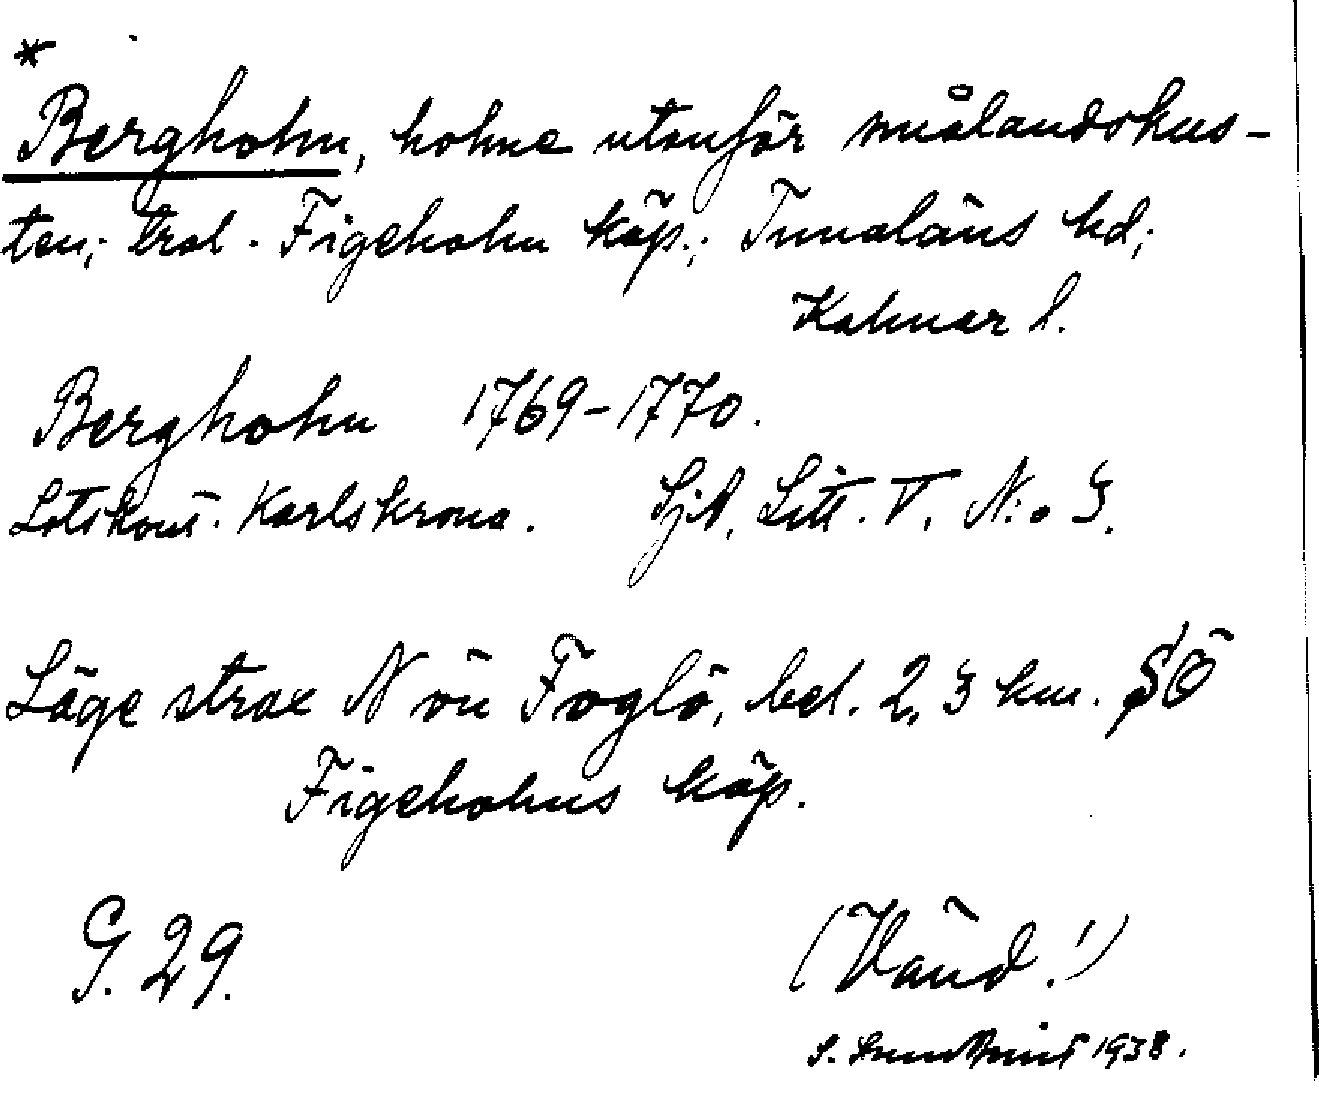 *
Bergholm, holme utanför smålandskus-
ten; trol. Figeholm köp.; Tunaläns hd;
Kalmar l.
Bergholm 1769-1770.
Lotskont. Karlskrona. Sjk. Litt. V. N:o 3.
Läge strax N ön Foglö, bel. 2,3 km. SÖ
Figeholms köp.
G. 29.
(Vänd!)
S. 1938.